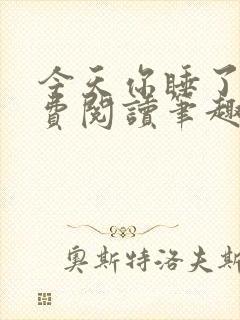 今天你睡了
費閱讀筆趣
奧斯特洛夫斯